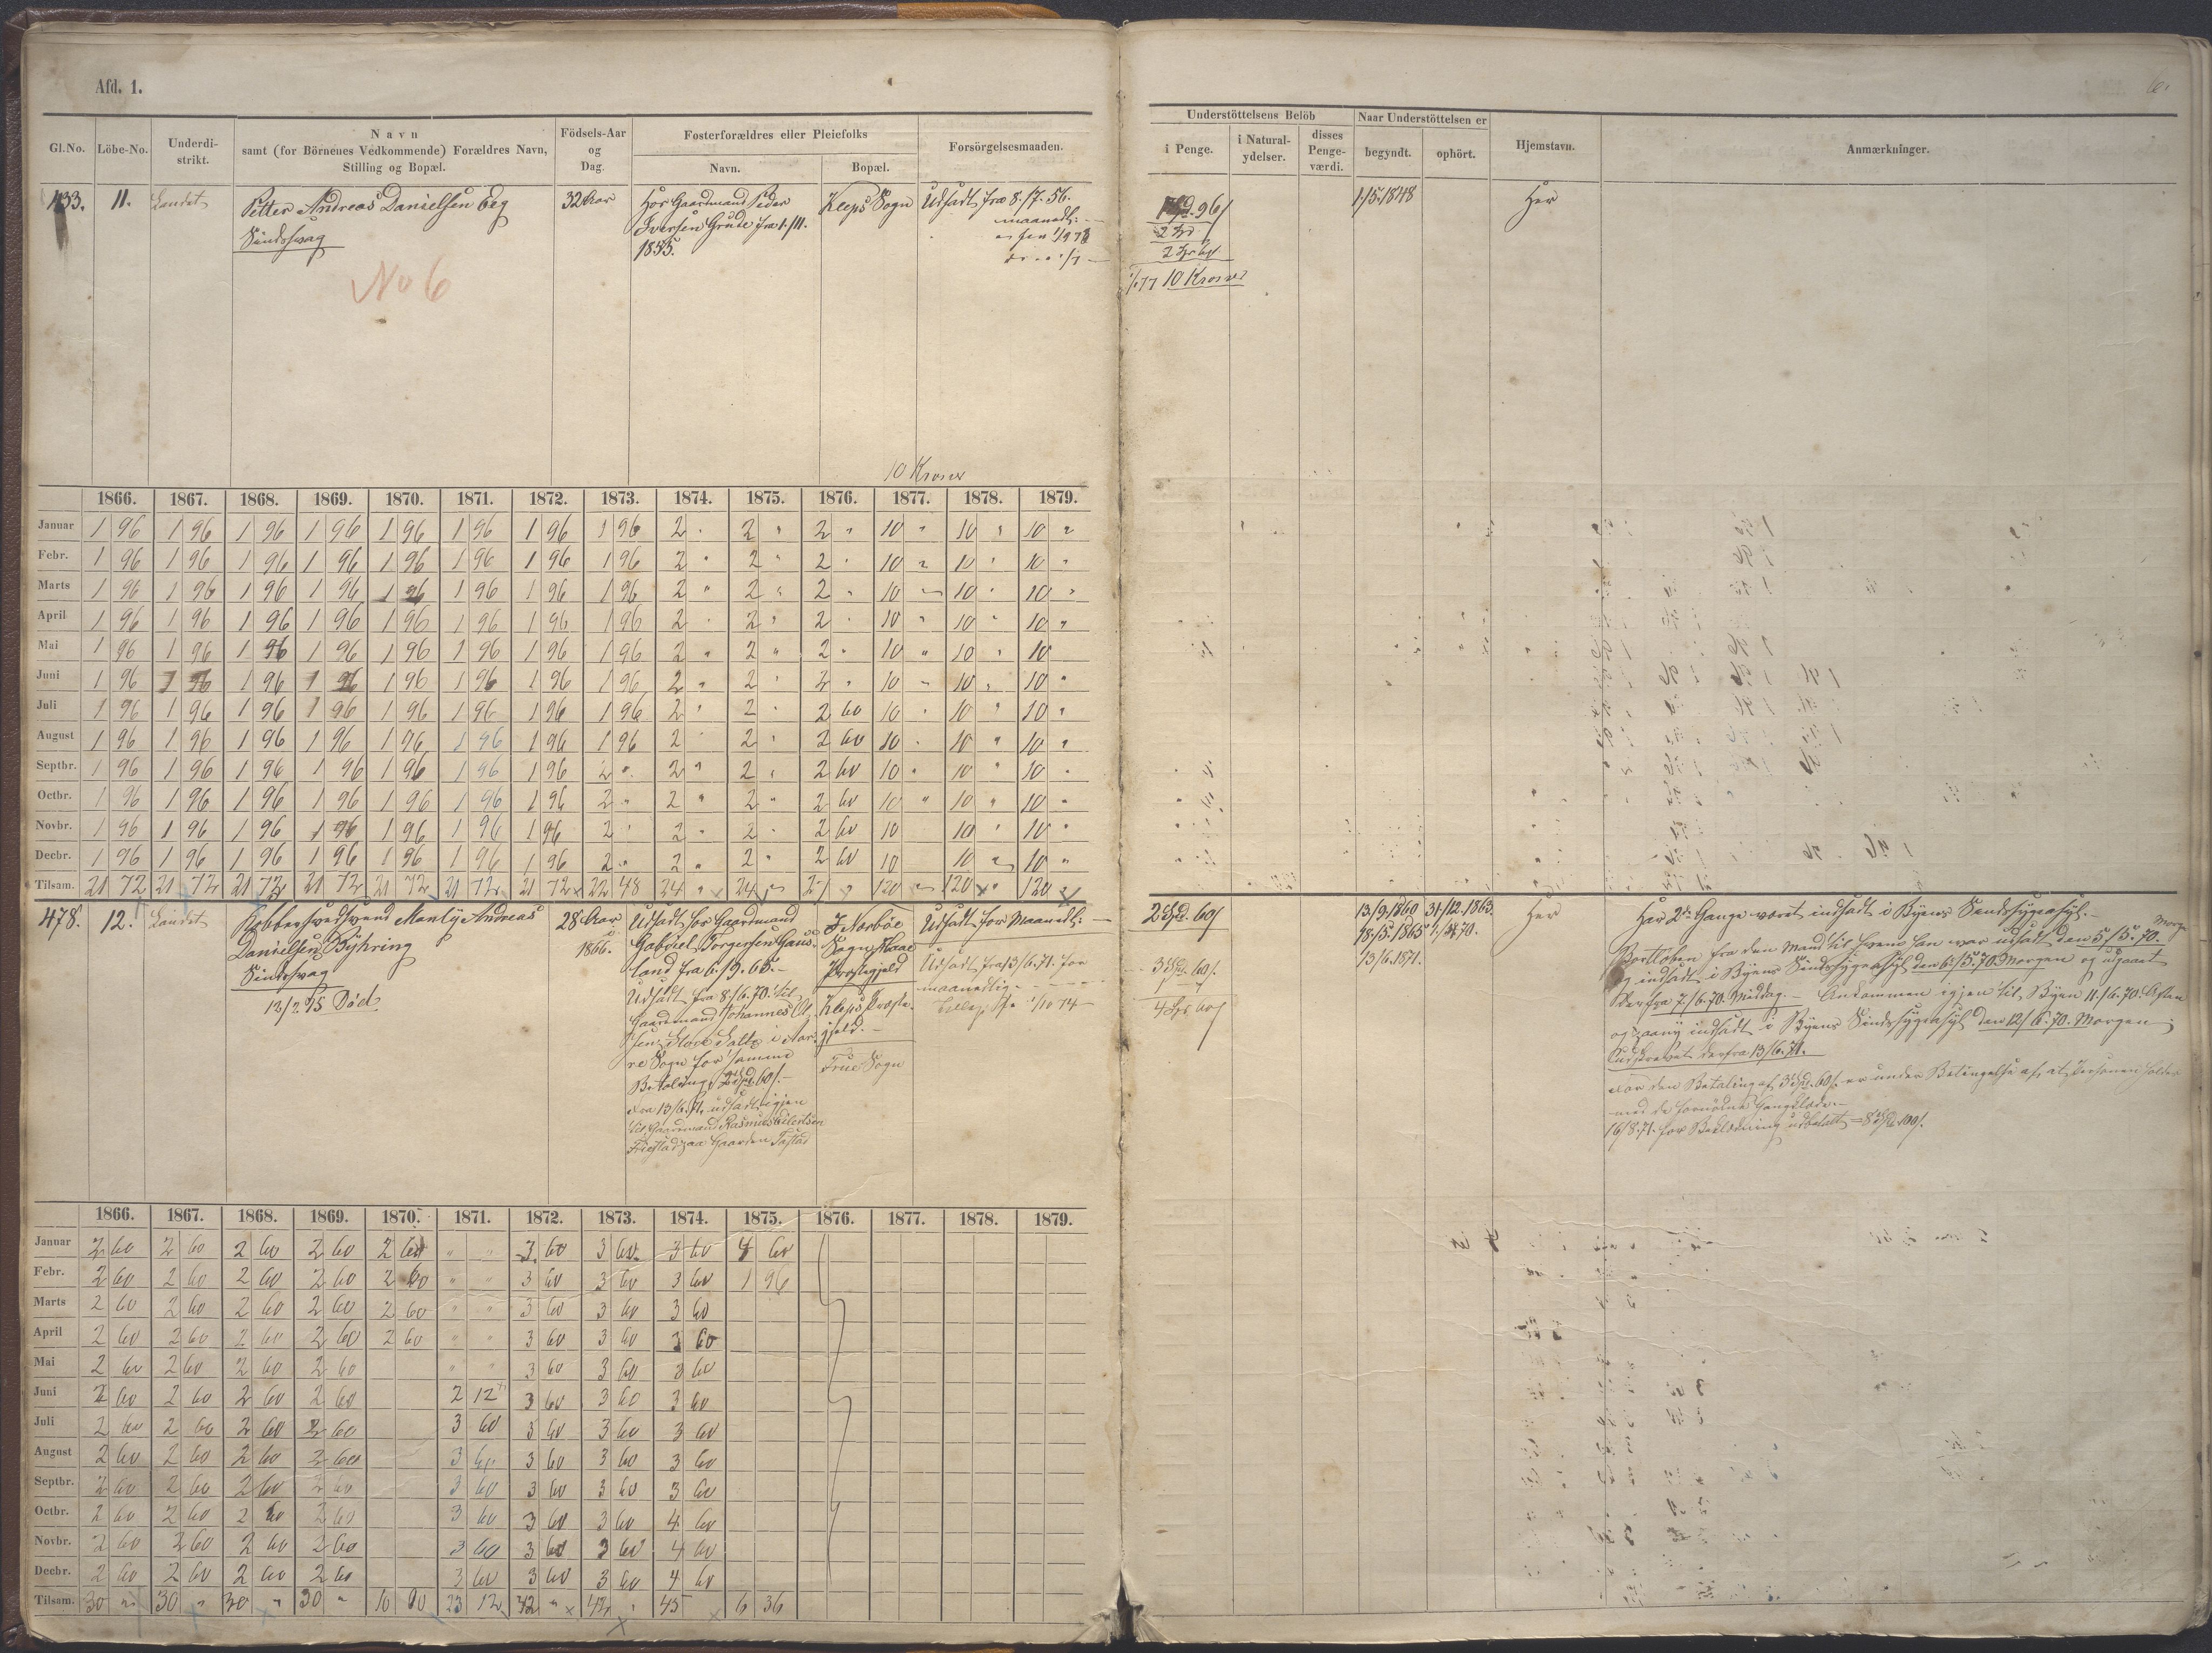 Afd. 1.
6.
Gl.No. Löbe-No. Underdistrikt. Navn samt (for Börnenes Vedkommende) Forældres Navn, Stilling og Bopæl. Födsels-Aar og Dag. Fosterforældres eller Pleiefolks Navn. Bopæl. Forsörgelsesmaaden.
Understöttelsens Belöb i Penge. i Naturalydelser. disses Pengeværdi. Naar Understöttelsen er begyndt. ophört. Hjemstavn. Anmærkninger.
433. 11. Landet
Petter Andreas Danielsen Eeg
Sindssvag
No 6
32 Aar
Hos Gaardmand Peder
Iversen Grude fra 1/11.
1855.
Kleps Sogn
Udsadt fra 8/7. 56.
maanedl:
1 Spd. 96/
2 Spd
1/1 77 10 Kroner
1/5.1848
Her
10 Kroner
1866. 1867. 1868. 1869. 1870. 1871. 1872. 1873. 1874. 1875. 1876. 1877. 1878. 1879.
Januar 1 96 1 96 1 96 1 96 1 96 1 96 1 96 1 96 2 " 2 " 2 " 10 " 10 " 10 "
Febr. 1 96 1 96 1 96 1 96 1 96 1 96 1 96 1 96 2 " 2 " 2 " 10 " 10 " 10 "
Marts 1 96 1 96 1 96 1 96 1 96 1 96 1 96 1 96 2 " 2 " 2 " 10 " 10 " 10 "
April 1 96 1 96 1 96 1 96 1 96 1 96 1 96 1 96 2 " 2 " 2 " 10 " 10 " 10 "
Mai 1 96 1 96 1 96 1 96 1 96 1 96 1 96 1 96 2 " 2 " 2 " 10 " 10 " 10
Juni 1 96 1 96 1 96 1 96 1 96 1 96 1 96 1 96 2 " 2 " 2 " 10 " 10 " 10 "
Juli 1 96 1 96 1 96 1 96 1 96 1 96 1 96 1 96 2 " 2 " 2 60 10 " 10 " 10 "
August 1 96 1 96 1 96 1 96 1 96 1 96 1 96 1 96 2 " 2 " 2 60 10 " 10 " 10 "
Septbr. 1 96 1 96 1 96 1 96 1 96 1 96 1 96 2 " 2 " 2 " 2 60 10 " 10 " 10 "
Octbr. 1 96 1 96 1 96 1 96 1 96 1 96 1 96 2 " 2 " 2 " 2 60 10 " 10 " 10 "
Novbr. 1 96 1 96 1 96 1 96 1 96 1 96 1 96 2 " 2 " 2 " 2 60 10 10 " 10 "
Decbr. 1 96 1 96 1 96 1 96 1 96 1 96 1 96 2 " 2 " 2 " 2 60 10 10 " 10 "
Tilsam. 21 72 21 72 21 72 21 72 21 72 21 72 21 72 22 48 24 " 24 " 27 " 120 " 120 " 120 "
478. 12. Landet
Kobbersvedsvend Manly Andreas
Danielsen Byhring
Sindssvag
12/2 75 Död
28 Aar
1866.
Udsadt hos Gaardmand
Gabriel Torgersen Gausland fra 6/9. 65.
Udsadt fra 8/6.70. til
Gaardmand Johannes
re Sogn for samme
Betaling, 2 Spd. 60/.
Fra 13/6.71. udsadt igjen
til Gaardmand Rasmus Eilertsen
Friestad paa Gaarden
I Norböe
Sogn, Haae
Præstegjeld
Kleps Præstegjeld.
Frue Sogn
Udsadt for Maanedl:
Udsadt fra 13/6.71. for
maanedlig
1/10 74
2 Spd. 60/
3 Spd. 60/.
4 Spd. 60/
13/9.1860 31/12.1863.
18/5.1865
13/6.1871.
Her
Har 2de Gange været indsadt i Byens Sindssygeasyl.
Bortloben fra den Mand til hvem han var udsadt den 5/5.70. Morgen
og indsadt i Byens Sindssygeasyl den 6/5.70 Morgen og udgaaet
derfra 7/6.70. Middag. Ankommen igjen til Byen 11/6.70. Aften
og paany indsadt i Byens Sindssygeasyl den 12/6.70. Morgen;
Udskrevet derfra 13/6.71.
For den Betaling af 3 Spd. 60/. er under Betingelse af, at Personen holdes
med de fornödne Gangklæder.
16/8.71. for Beklædning udbetalt = 8 Spd. 100/.
1866. 1867. 1868. 1869. 1870. 1871. 1872. 1873. 1874. 1875. 1876. 1877. 1878. 1879.
Januar 2 60 2 60 2 60 2 60 2 60 " " 3 60 3 60 3 60 4 60
Febr. 2 60 2 60 2 60 2 60 2 60 " " 3 60 3 60 3 60 1 96
Marts 2 60 2 60 2 60 2 60 2 60 " " 3 60 3 60 3 60
April 2 60 2 60 2 60 2 60 2 60 " " 3 60 3 60 3 60
Mai 2 60 2 60 2 60 2 60 " " 3 60 3 60 3 60
Juni 2 60 2 60 2 60 2 60 2 12 3 60 3 60 3 60
Juli 2 60 2 60 2 60 2 60 3 60 3 60 3 60 3 60
August 2 60 2 60 2 60 2 60 3 60 3 60 3 60 3 60
Septbr. 2 60 2 60 2 60 2 60 3 60 3 60 3 60 3 60
Octbr. 2 60 2 60 2 60 2 60 3 60 3 60 3 60 4 60
Novbr. 2 60 2 60 2 60 2 60 3 60 3 60 3 60 4 60
Decbr. 2 60 2 60 2 60 2 60 3 60 3 60 3 60 4 60
Tilsam. 30 " 30 " 30 " 30 " 10 23 12 42 " 42 " 45 6 36